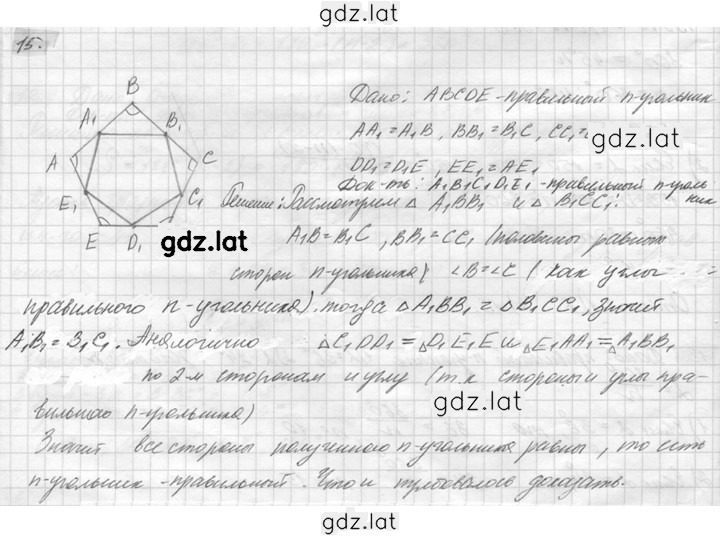 gdz.lat
15.
B
A₁
B₁
A
C
E₁
C₁
E
D₁
Дано: ABCDE - правильный n-угольник
AA₁ = A₁B, BB₁ = B₁C, CC₁ =
DD₁ = D₁E, EE₁ = AE₁
Док-ть: A₁B₁C₁D₁E₁ - правильный n-уголь
ник
Решение: Рассмотрим △ A₁BB₁ и △ B₁CC₁:
gdz.lat
A₁B = B₁C, BB₁ = CC₁ (половины равных
сторон n-угольника) ∠B = ∠C (как углы
правильного n-угольника). тогда △ A₁BB₁ = △ B₁CC₁, Значит
A₁B₁ = B₁C₁. Аналогично △C₁DD₁ = △D₁E₁E и △E₁AA₁ = △A₁BB₁
по 2-м сторонам и углу (т.к стороны и углы пра-
вильного n-угольника)
gdz.lat
Значит все стороны полученного n-угольника равны, то есть
n-угольник - правильный. Что и требовалось доказать.
gdz.lat